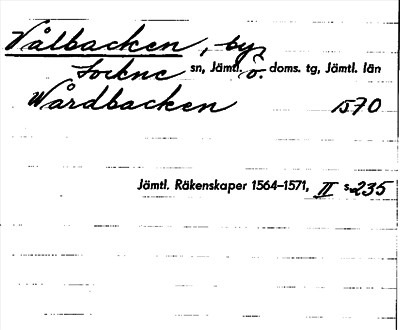 Vålbacken, by
Lockne sn, Jämtl. ö. doms. tg, Jämtl. län
Wårdbacken 1570
Jämtl. Räkenskaper 1564–1571, II s. 235